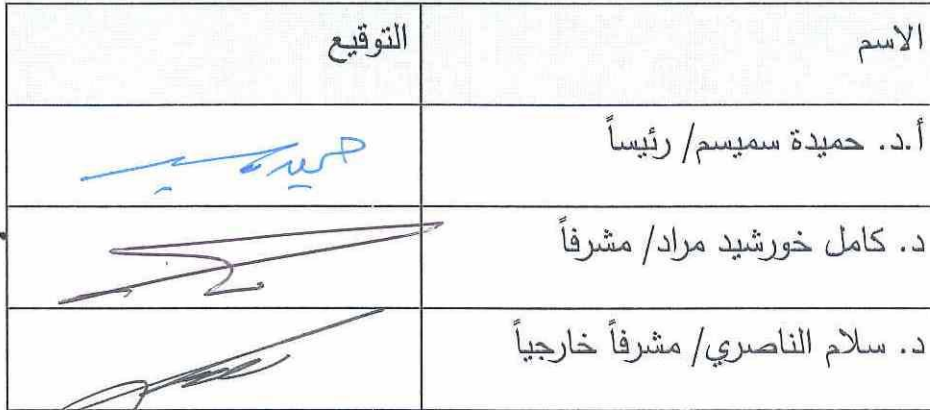 الاسم
التوقيع
أ.د. حميدة سميسم/ رئيساً
د. كامل خورشيد مراد/ مشرفاً
د. سلام الناصري/ مشرفاً خارجياً